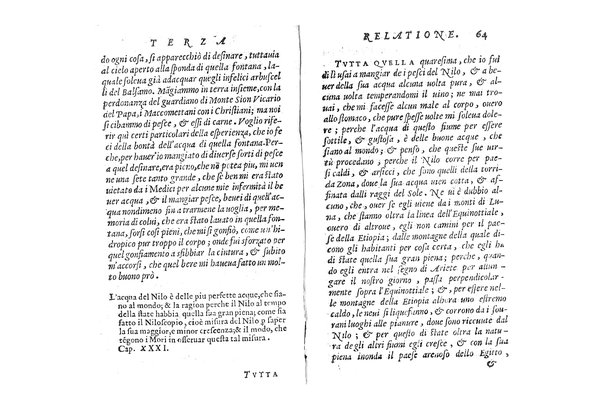 TERZA
do ogni cosa, si apparecchiò di desinare, tuttauia
al cielo aperto alla sponda di quella fontana, la-
quale soleua già adacquar quegli infelici arbuscel
li del Balsamo. Magiammo in terra insieme, con la
perdonanza del guardiano di Monte Sion Vicario
del Papa, i Maccomettani con i Christiani; ma noi
si cibammo di pesce, & essi di carne. Voglio riferi-
rir quì certi particolari della esperienza, che io fe
ci della bontà dell'acqua di quella fontana. Per-
che, per hauer io mangiato di diuerse sorti di pesce
a quel desinare, era pieno, che nõ potea piu, mi uen
ne una sete tanto grande, che se ben mi era stato
uietato da i Medici per alcune mie infermità il be
uer acqua, & il mangiar pesce, beuei di quell'ac-
qua nondimeno fin a trarmene la uoglia, per me-
moria di colui, che era stato lauato in quella fon-
tana, forsi così pieni, che mi si gonfiò, come un'hi-
dropico pur troppo il corpo; onde fui sforzato per
quel gonfiamento a sfibbiar la cintura, & subito
m'accorsi, che quel bere mi haueua fatto un mol-
to buono prò.
L'acqua del Nilo è delle piu perfette acque, che sia-
no al mondo; & la ragion perche il Nilo al tempo
della state habbia quella sua gran piena; come sia
fatto il Niloscopio, cioè misura del Nilo p saper
la sua maggior, e minor crescenza; & il modo, che
tẽgono i Mori in osseruar questa tal misura.
Cap. XXXI.
TVTTA
RELATIONE. 64
TVTTA QVELLA quaresima, che io fui
di lì usai a mangiar de i pesci del Nilo, & a be-
uer della sua acqua alcuna uolta pura, & al-
cuna uolta temperandomi il uino; ne mai tro-
uai, che mi facesse alcun male al corpo, ouero
allo stomaco, che pure spesse uolte mi soleua dole-
re; perche l'acqua di questo fiume per essere
sottile, & gustosa, è delle buone acque, che
siano al mondo; & penso, che queste sue uir-
tù procedano; perche il Nilo corre per pae-
si caldi, & arsicci, che sono quelli della torri-
da Zona, doue la sua acqua uien cotta, & af-
finata dalli raggi del Sole. Ne ui è dubbio al-
cuno, che ouer se egli uiene da i monti di Lu-
na, che stanno oltra la linea dell'Equinottiale,
ouero di altroue, egli non camini per il pae-
se della Etiopia; dalle montagne della quale di-
cono gli habitanti per cosa certa, che egli hà
di state quella sua gran piena; perche, quan-
do egli entra nel segno di Ariete per allun-
gare il nostro giorno, passa perpendicolar-
mente sopra l'Equinottiale; & per essere nel-
le montagne della Etiopia allora uno estremo
caldo, le neui si liquefanno, & corrono da i so-
urani luoghi alle pianure, doue sono riceuute dal
Nilo; & per questo di state oltra la natu-
ra de gli altri fiumi egli cresce, & con la sua
piena inonda il paese arenoso dello Egitto,
&